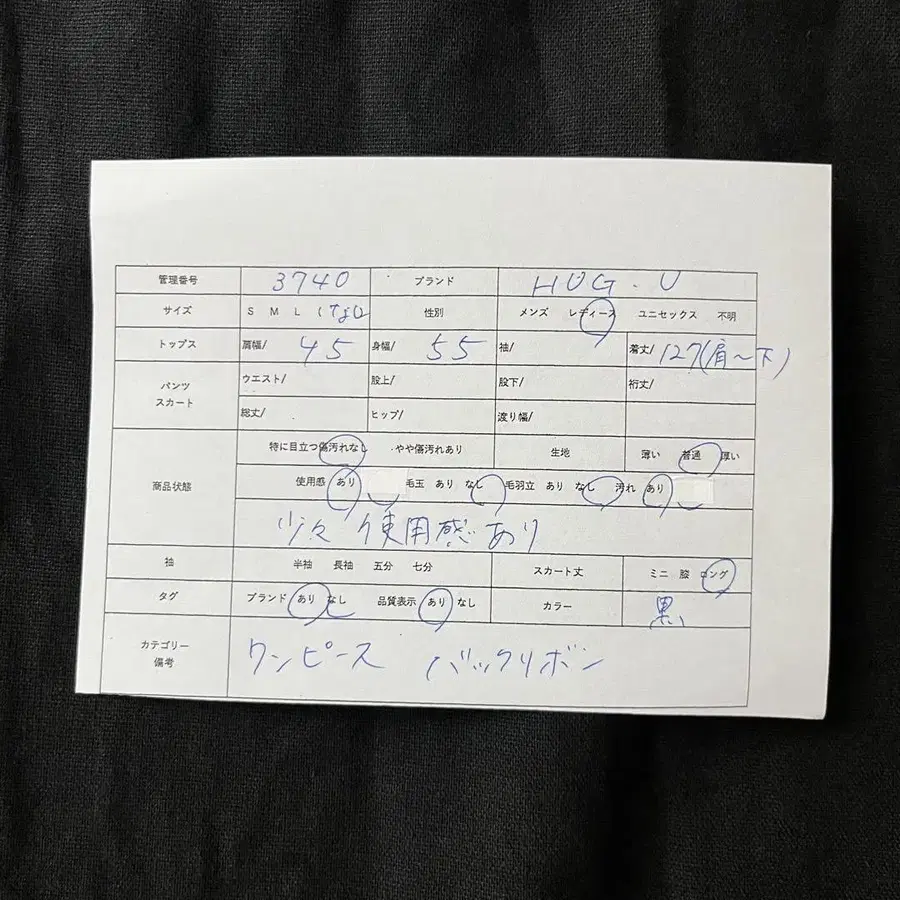 管理番号 3740 ブランド HUG.U
サイズ S M L (なし) 性別 メンズ レディース ユニセックス 不明
トップス 肩幅/ 45 身幅/ 55 袖/ 着丈/ 127(肩〜下)
パンツ スカート ウエスト/ 股上/ 股下/ 裄丈/
総丈/ ヒップ/ 渡り幅/
商品状態 特に目立つ傷汚れなし ・やや傷汚れあり 生地 薄い 普通 厚い
使用感 あり 毛玉 あり なし 毛羽立 あり なし 汚れ あり
少々使用感あり
袖 半袖 長袖 五分 七分 スカート丈 ミニ 膝 ロング
タグ ブランド あり なし 品質表示 あり なし カラー 黒
カテゴリー
備考 ワンピース バックリボン